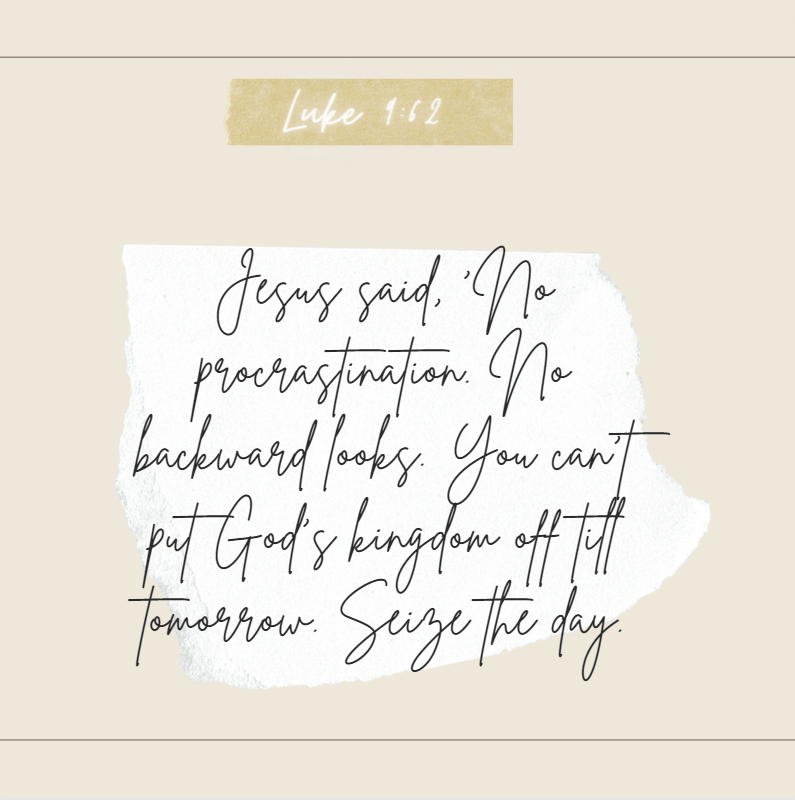 Luke 9:62
Jesus said, 'No
procrastination. No
backward looks. You can't
put God's kingdom off till
tomorrow. Seize the day.